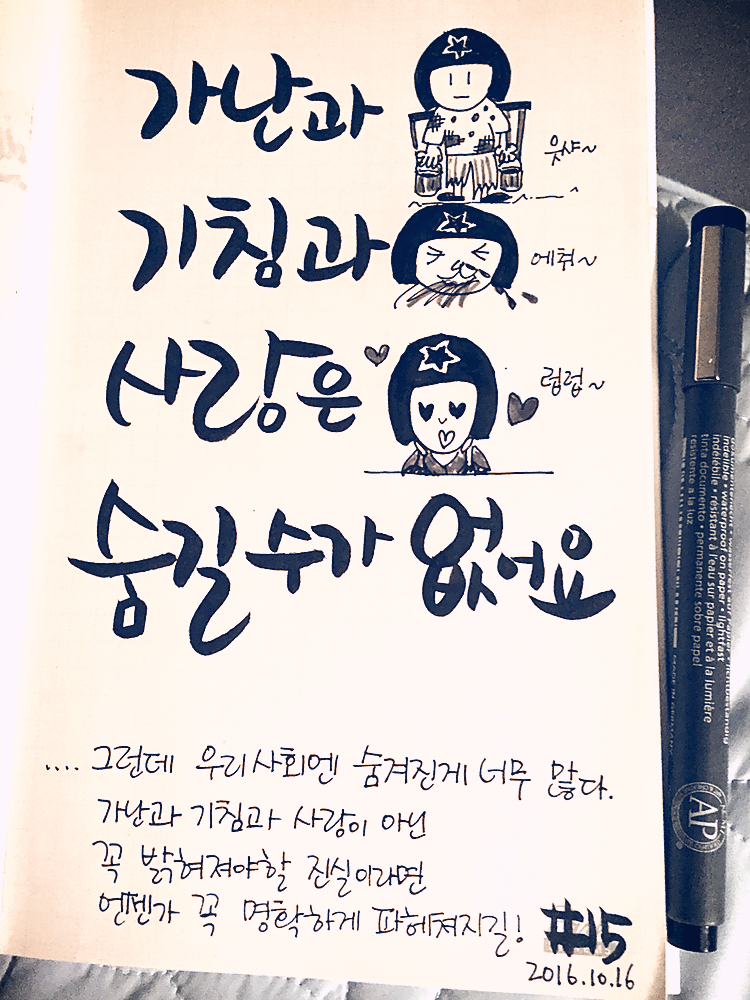 가난과
웃샤~
기침과
에취~
사랑은
럽럽~
숨길 수가 없어요
.... 그런데 우리사회엔 숨겨진게 너무 많다.
가난과 기침과 사랑이 아닌
꼭 밝혀져야할 진실이라면
언젠가 꼭 명확하게 파헤쳐지길!
#15
2016.10.16
indelible • waterproof on paper • lightfast
indélébile • résistant à l'eau sur papier et à la lumière
tinta documento • permanente sobre papel
resistente a la luz
AP